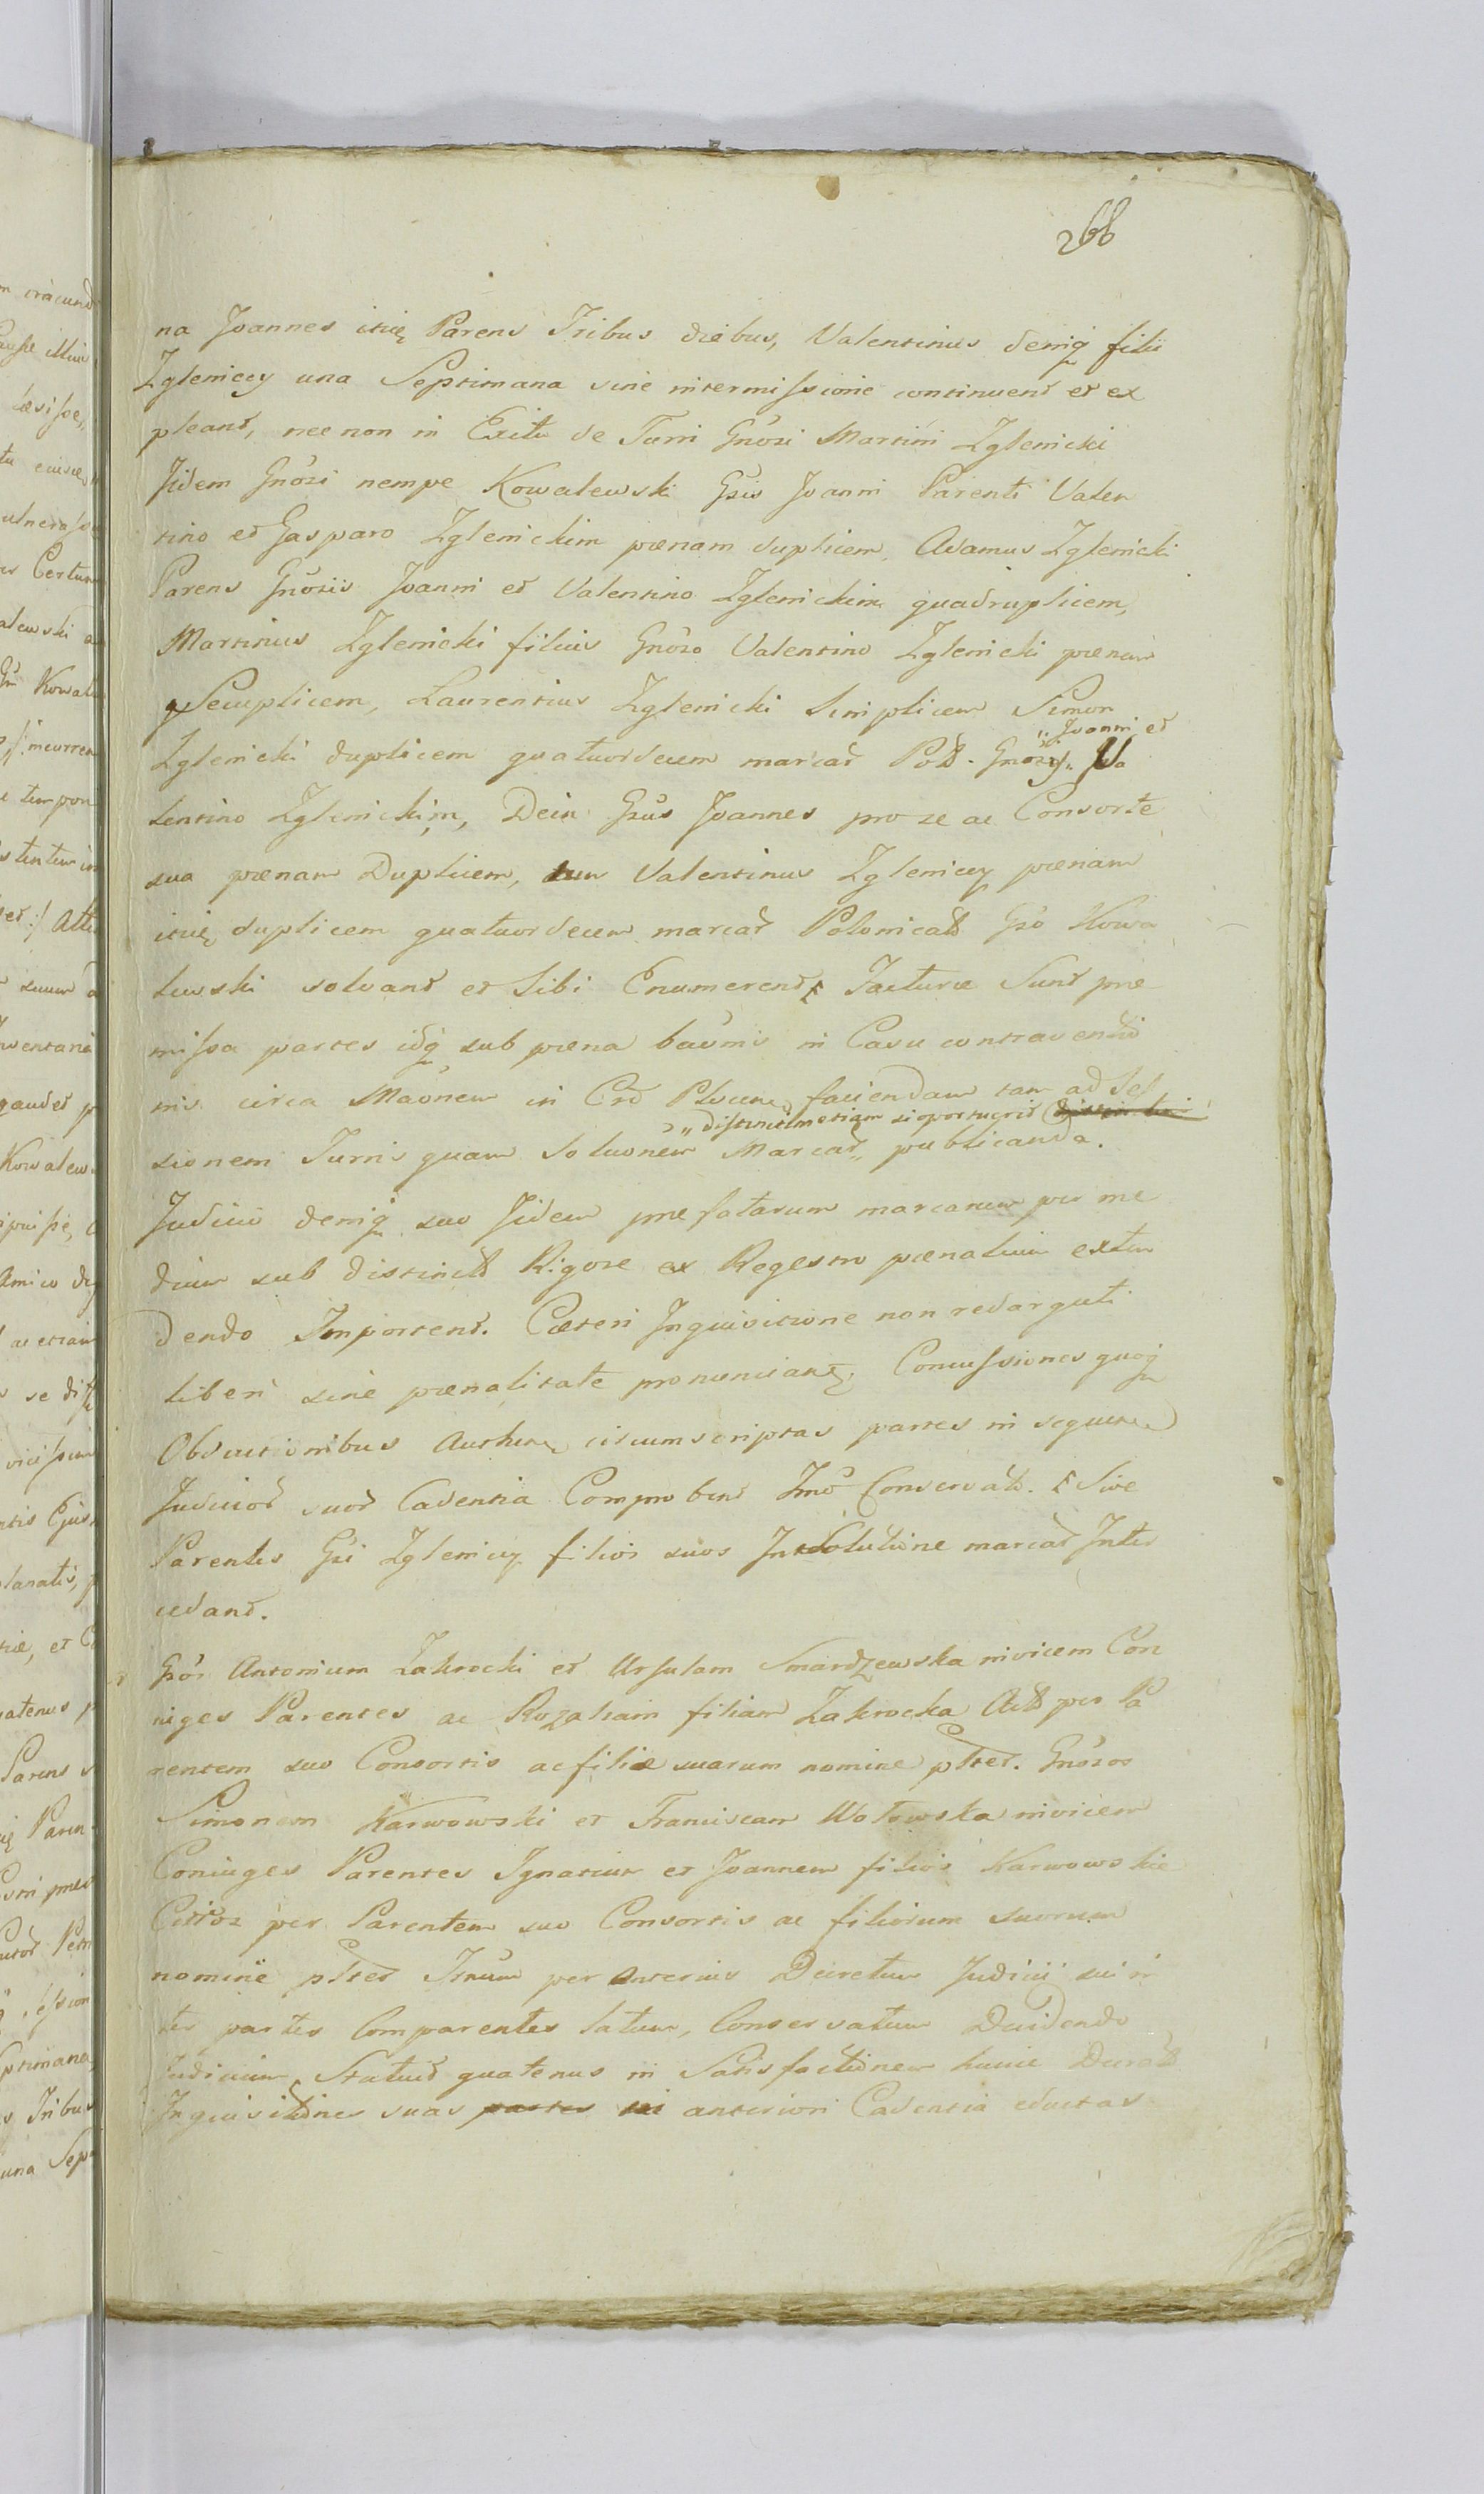 266
na Joannes itię Parens Tribus diebus, Valentinus deniq filii
Zgleniccy una Septimana sine intermissione continuent et ex
pleant, nec non in Exitu de Turri Gnosi Martini Zglenicki
Jidem Gnosi nempe Kowalewski Gsis Joanni Parenti Valen
tino et Gasparo Zglenickim pænam duplicem, Adamus Zglenicki
Parens Gnosis Joanni et Valentino Zglenickim quadruplicem,
Martinus Zglenicki filius Gnoso Valentino Zglenicki pænam
Secuplicem, Laurentius Zglenicki simplicem Simon
"Joanni et
Zglenicki duplicem quatuordecem marcar Pols. Gnosis " Va
lentino Zglenickim, Dein Gsus Joannes pro se ac Consorte
sua pænam Duplicem, tum Valentinus Zglenicey pænam
itię duplicem quatuordecem marcar Polonicals Gso Kowa
lewski solvant et sibi Enumerent Facturæ Sunt præ
missa partes idq sub pæna baonis in Casu contraventio
nis circa Maonem in Crd Plocen faciendam tam ad Ses
" distinctim etiam si oportuerit
sionem Turris quam Solutionem Marcar " publicanda.
Judicio deniq suo Jidem præfatarum marcarum per me
dium sub distincto Rigore ex Regestro pænalium extra
dendo Importent. Cæteri Inquisitione non redarguti
liberi sine pænalitate pronunciant. Concussiones quoq
Obductionibus Authen circumscriptas partes in sequen
Judicior suor Cadentia Comproben Imo Conservato. Sive
Parentes Gsi Zglenicy filios suos In Solutione marcar Inter
cedant.
Gsor Antonium Zakrocki et Ursulam Smardzewska invicem Con
iuges Parentes ac Rozaliam filiam Zakrocka Act per Pa
rentem suo Consortis ac filiæ suarum nomine pltes. Gnosos
Simonem Karwowski et Franciscam Wołowska invicem
Coniuges Parentes Ignatium et Joannem filios Karwowskie
Citos per Parentem suo Consortis ac filiorum suorum
nomine pltes Itnum per anterius Decretum Judicii sui in
ter partes Comparentes latum, Conservatum Decidendo
Judicium Statuit quatenus in Satisfactionem huius Decreti
Inquisitiones suas partes in anteriori Cadentia eductas